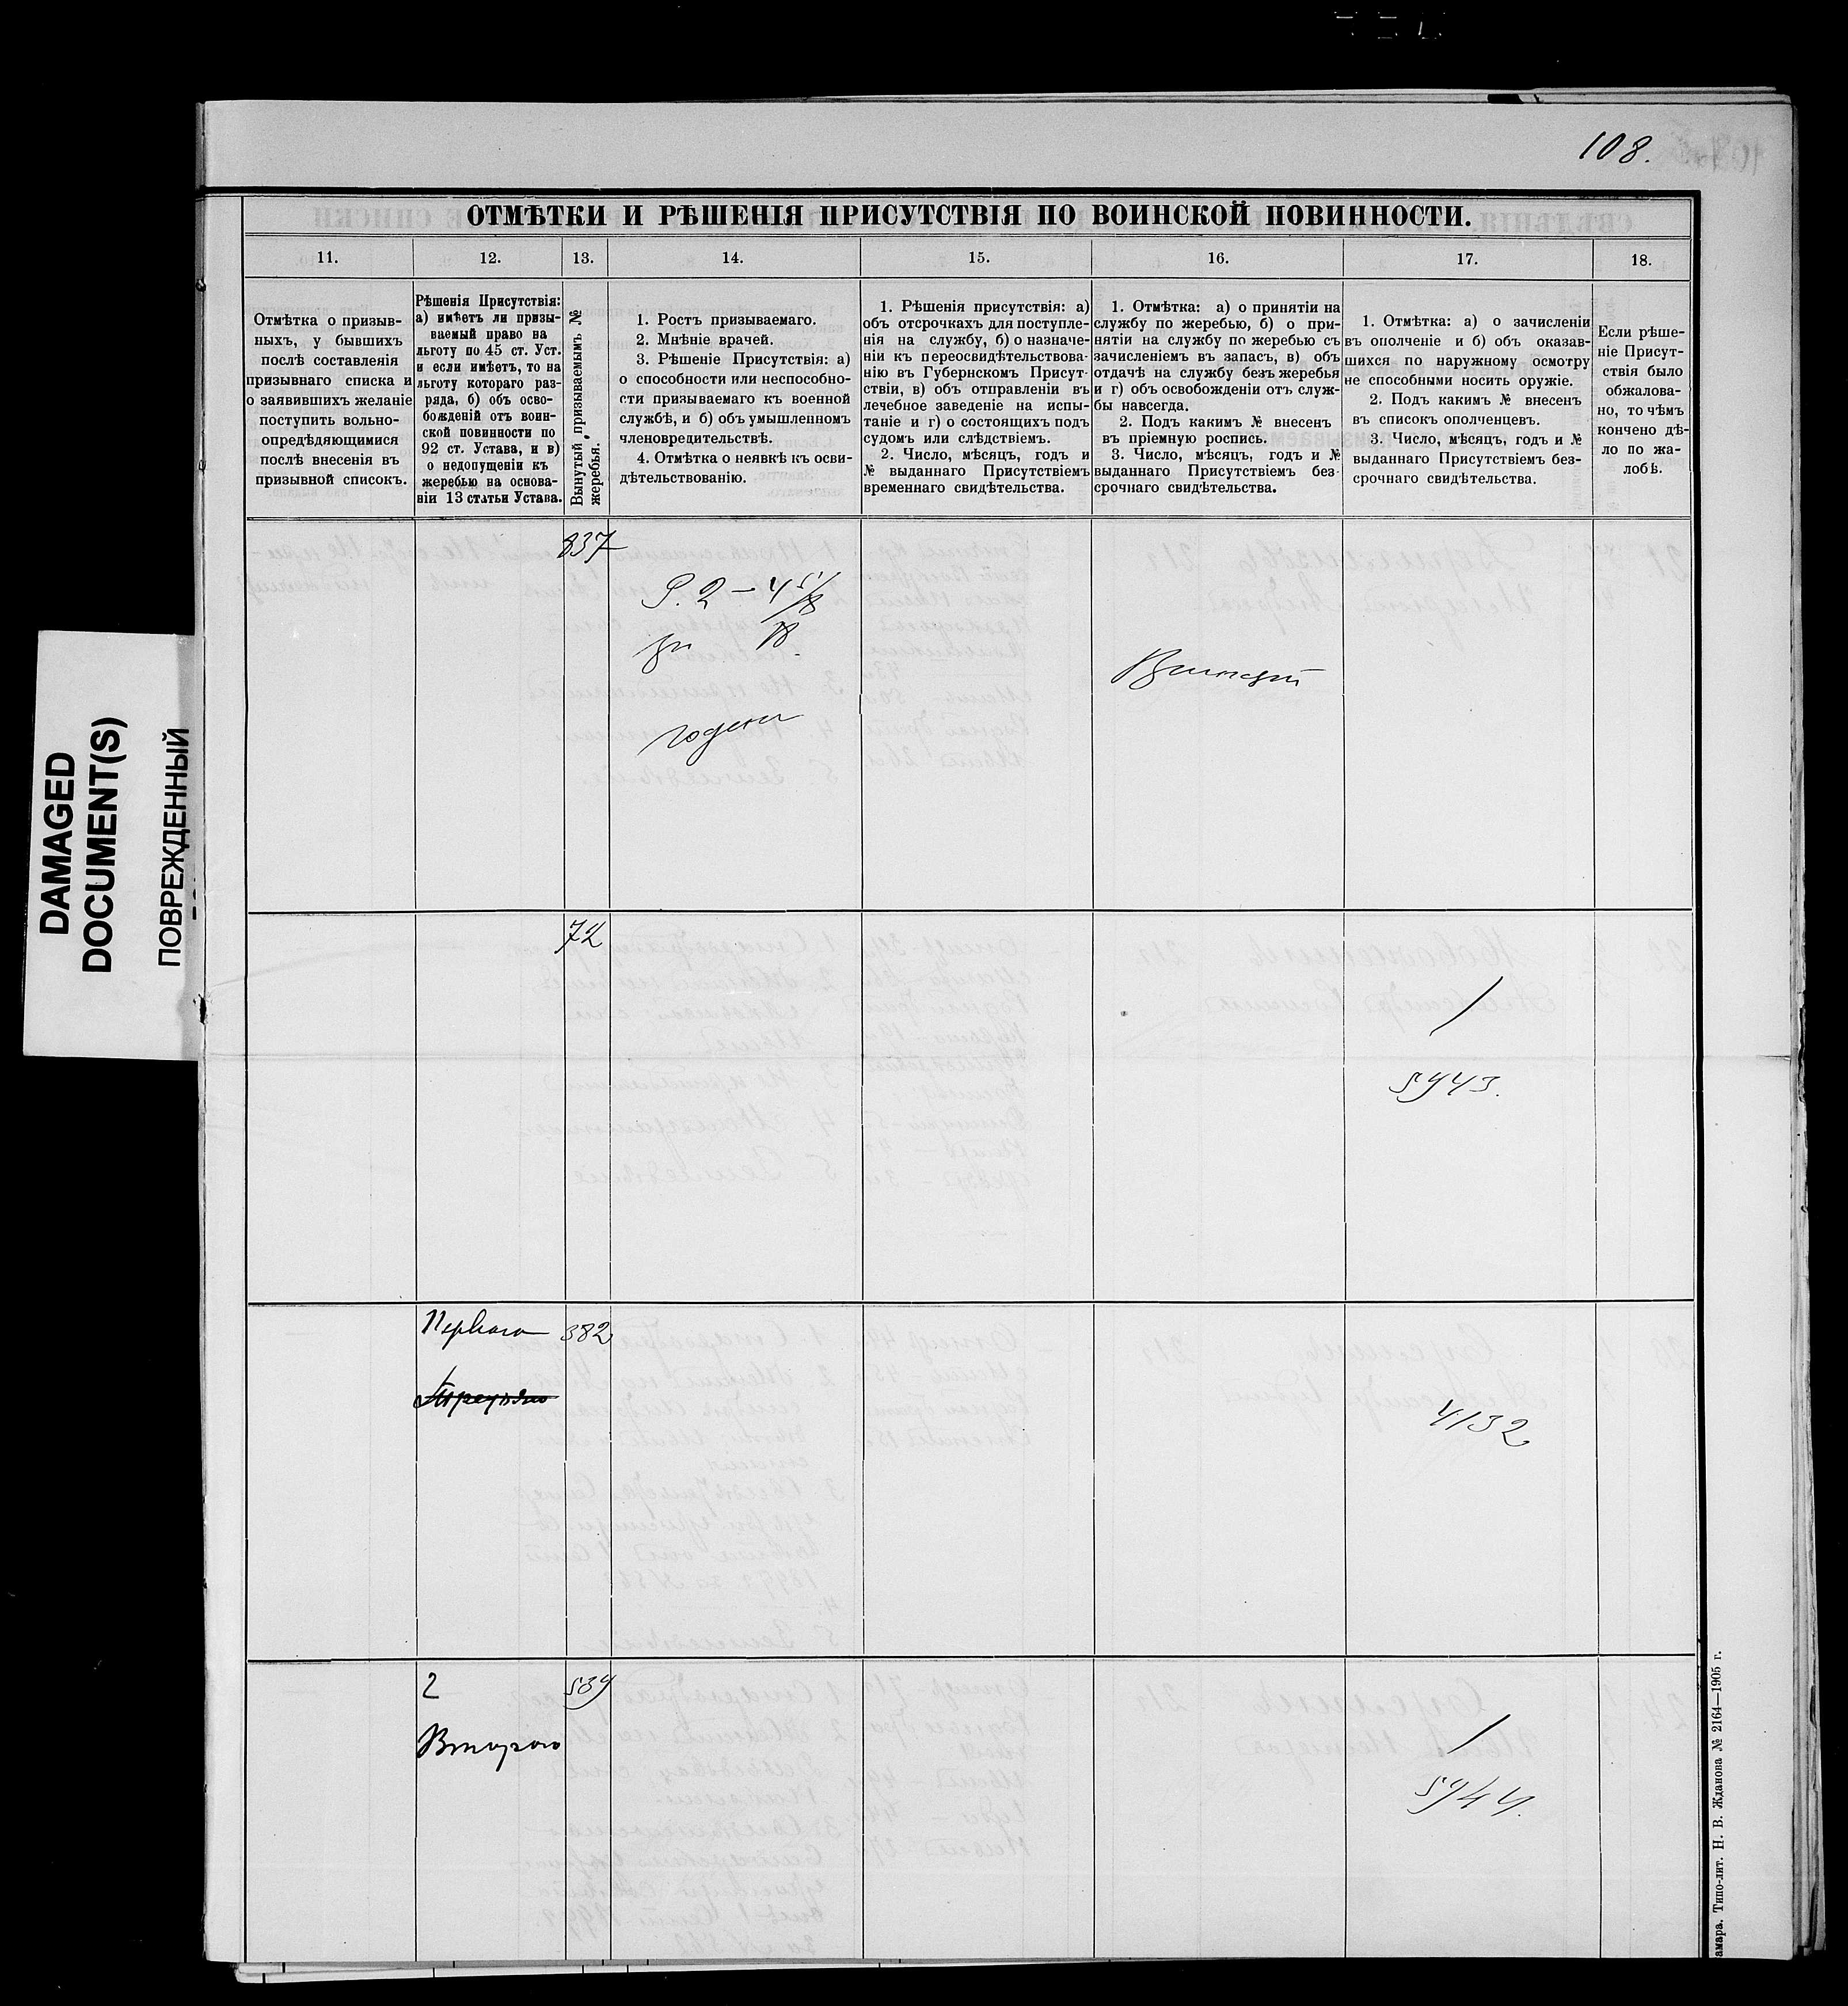 108.
ОТМѢТКИ И РѢШЕНІЯ ПРИСУТСТВІЯ ПО ВОИНСКОЙ ПОВИННОСТИ.
11.
12.
13.
14.
15.
16.
17.
18.
Отмѣтка о призыв-
ныхъ, у бывшихъ
послѣ составленія
призывнаго списка и
о заявившихъ желаніе
поступить вольно-
опредѣдяющимися
послѣ внесенія въ
призывной списокъ.
Рѣшенія Присутствія:
а) имѣетъ ли призы-
ваемый право на
льготу по 45 ст. Уст.
и если имѣетъ, то на
льготу котораго раз-
ряда, б) объ осво-
божденій отъ воин-
ской повинности по
92 ст. Устава, и в)
о недопущеніи къ
жеребью на основа-
ніи 13 статьи Устава.
Вынутый призываемымъ №
жеребья.
1. Ростъ призываемаго.
2. Мнѣніе врачей.
3. Рѣшеніе Присутствія: а)
о способности или неспособно-
сти призываемаго къ военной
службѣ, и б) объ умышленномъ
членовредительствѣ.
4. Отмѣтка о неявкѣ къ осви-
дѣтельствованію.
1. Рѣшенія присутствія: а)
объ отсрочкахъ для поступле-
нія на службу, б) о назначе-
ніи къ переосвидѣтельствова-
нію въ Губернскомъ Присут-
ствіи, в) объ отправленіи въ
лечебное заведеніе на испы-
таніе и г) о состоящихъ подъ
судомъ или слѣдствіемъ.
2. Число, мѣсяцъ, годъ и
№ выданнаго Присутствіемъ
временнаго свидѣтельства.
1. Отмѣтка: а) о принятіи на
службу по жеребью, б) о при-
нятіи на службу по жеребью съ
зачисленіемъ въ запасъ, в) объ
отдачѣ на службу безъ жеребья
и г) объ освобожденіи отъ служ-
бы навсегда.
2. Подъ какимъ № внесенъ
въ пріемную роспись.
3. Число, мѣсяцъ, годъ и №
выданнаго Присутствіемъ без-
срочнаго свидѣтельства.
1. Отмѣтка: а) о зачисленіи
въ ополченіе и б) объ оказав-
шихся по наружному осмотру
не способными носить оружіе.
2. Подъ какимъ № внесенъ
въ списокъ ополченцевъ.
3. Число, мѣсяцъ, годъ и №
выданнаго Присутствіемъ без-
срочнаго свидѣтельства.
Если рѣше-
ніе Присут-
ствія было
обжалова-
но, то чѣмъ
кончено дѣ-
ло по жа-
лобѣ.
837
Р. 2 – 4 5/8
годенъ
72
/
5943.
Перваго
382
4132
2
539
Втораго
/
5944.
DAMAGED
DOCUMENT(S)
ПОВРЕЖДЕННЫЙ
амара. Типо-лит. Н. В. Жданова № 2164—1905 г.